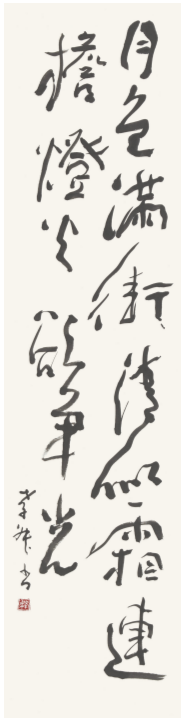 月色滿街清似霜連
檐燈火欲爭光
李 書